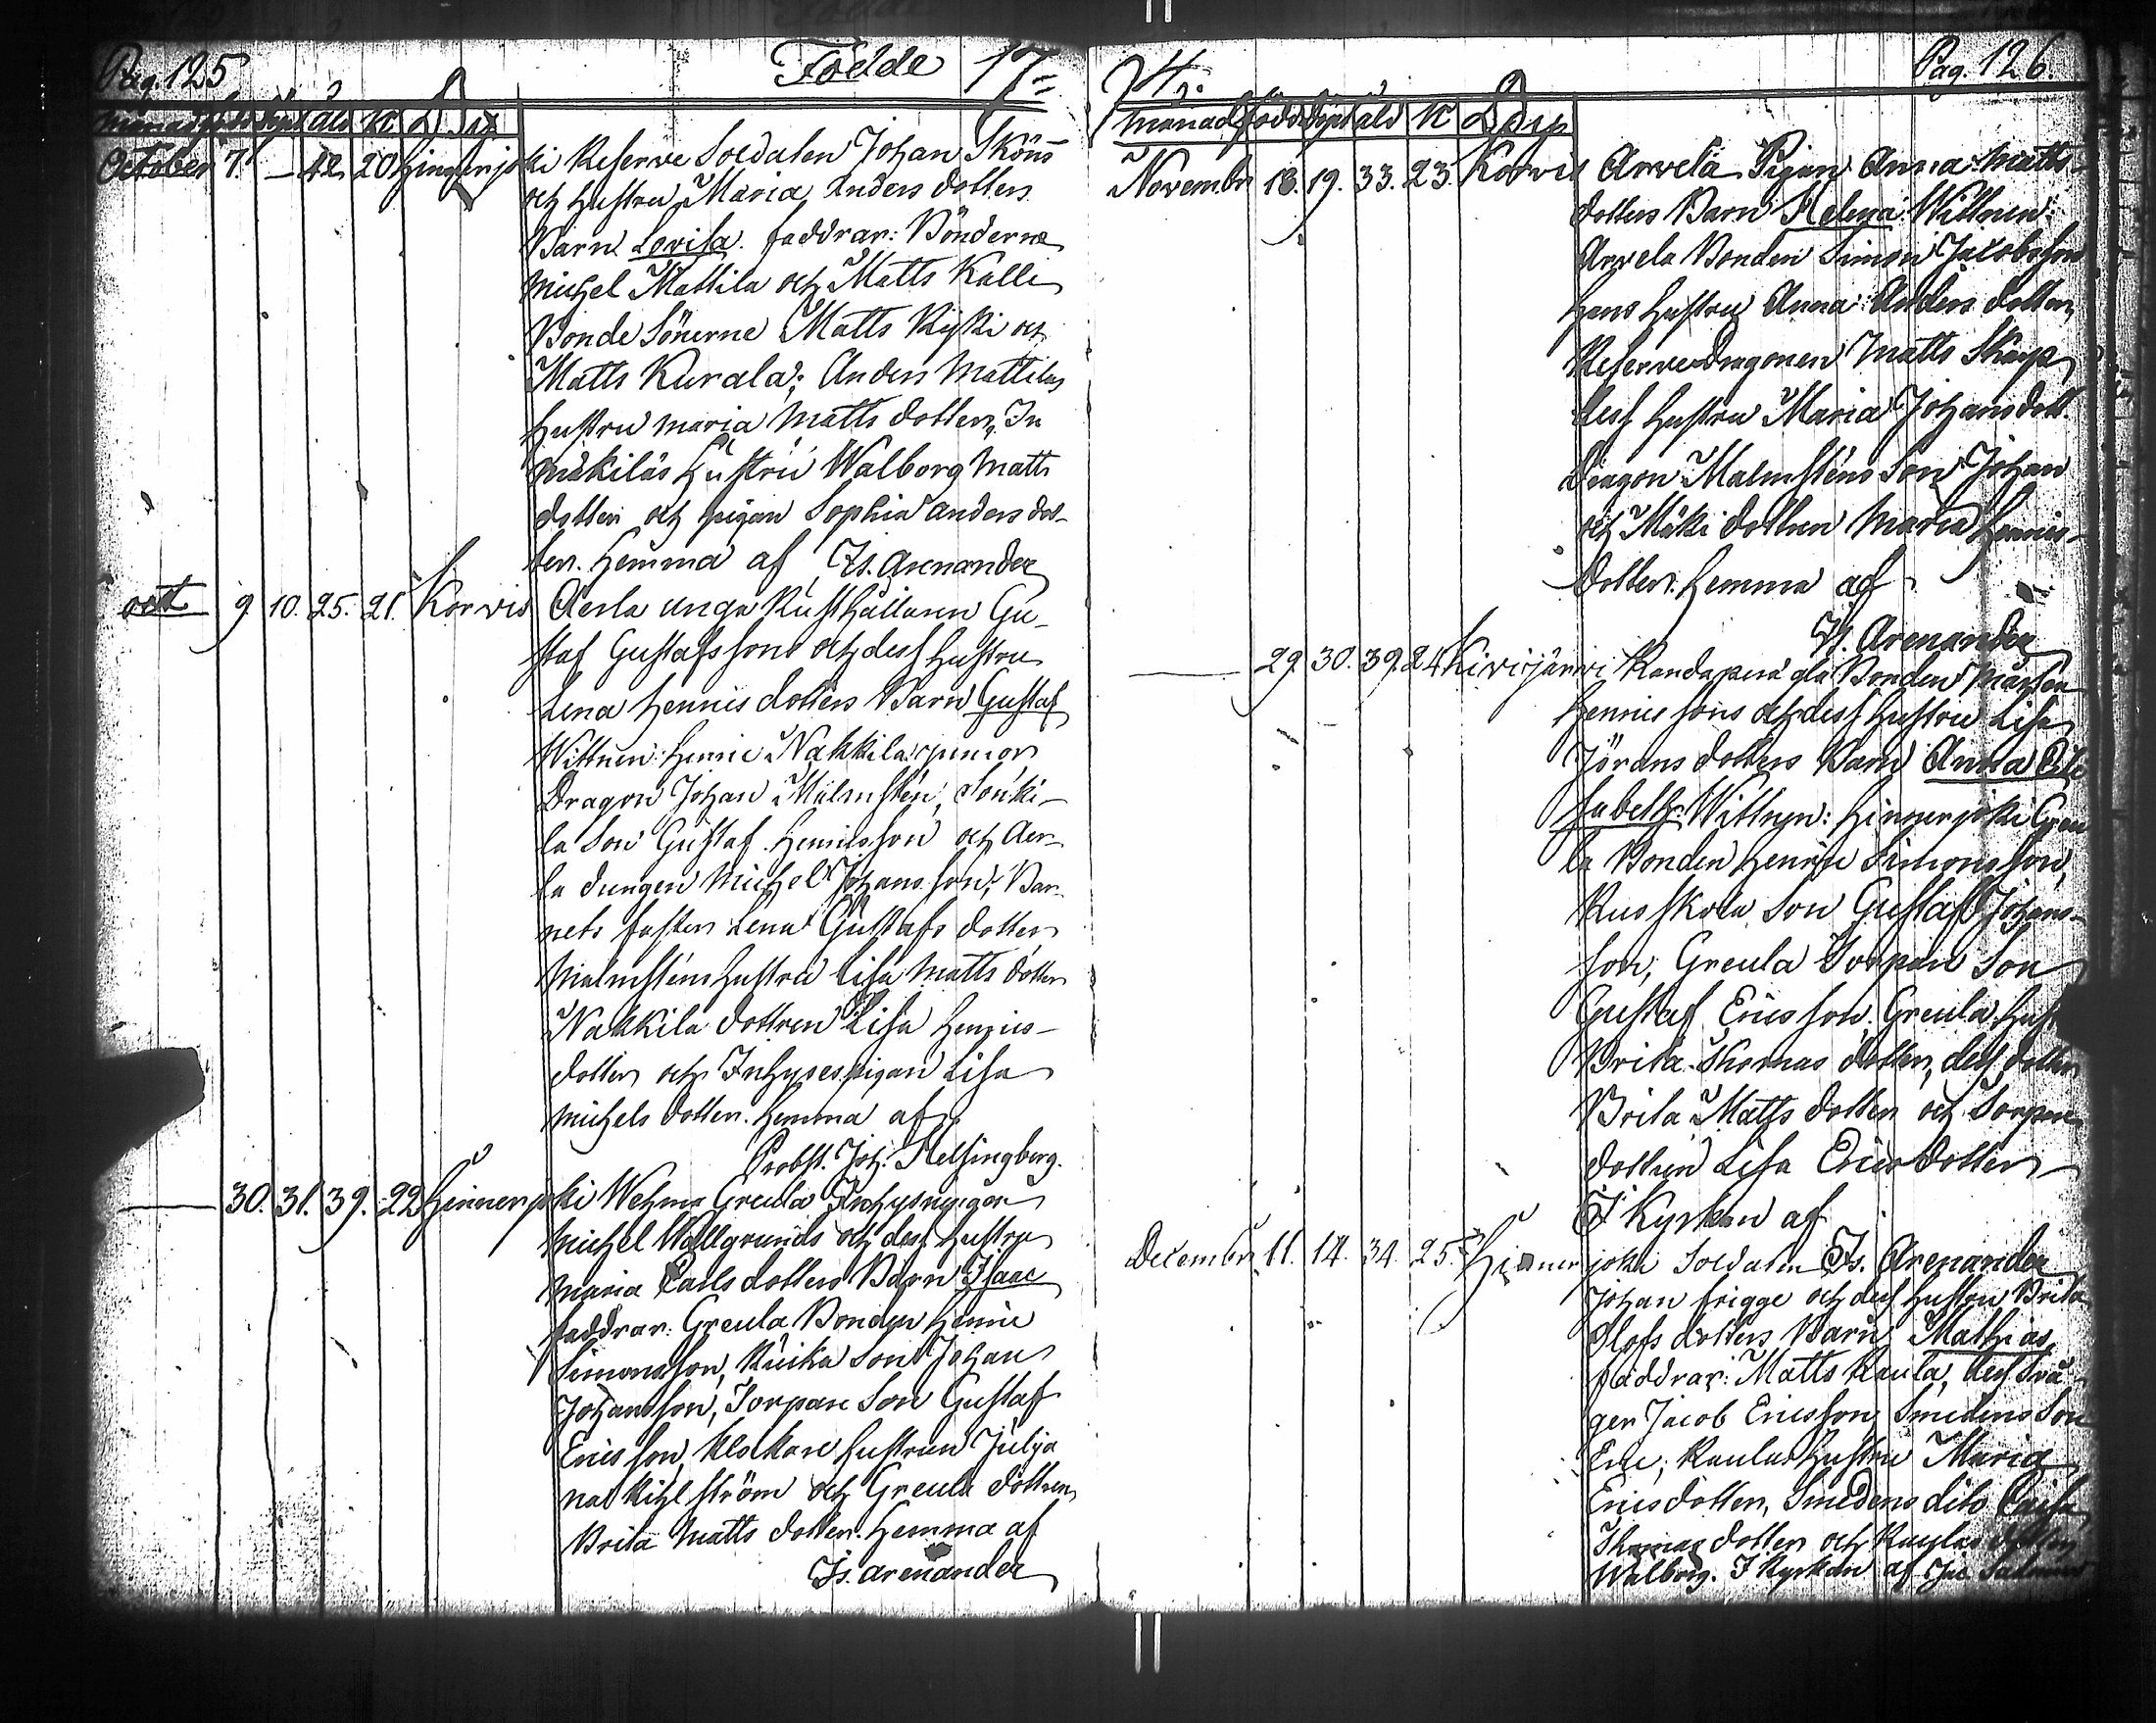 Pag. 125 Födde 17
Månad född döpt ålder N Byn
October 7 — 42 20 Hinnerjoki Reserve Soldaten Johan Sköns
och hustru Maria Anders dotters
Barn Lovisa. faddrar: Bönderne
Michel Mattila och Matts Kalli
Bonde Sönerne Matts Kyki och
Matts Kurala; Anders Mattilas
Hustru Maria Matts dotter, Jn
Mäkiläs Hustru Walborg Matts
dotter och pigan Sophia Anders dot-
ter. Hemma af Is. Arenander
9 10. 25. 21. Korvis Aerla unga Rusthållaren Gu-
staf Gustafssons och dess hustru
Lena Henrics dotters Barn Gustaf
Wittnen: Henric Nakkila junior
Dragon Johan Malmstén, Sonki-
la Son Gustaf Henricsson och Aer-
la drengen Michel Johansson; Bar-
nets faster Lena Gustafs dotter
Malmsténs hustru Lisa Matts dotter
Nakkila dottren Lisa Henrics-
dotter och Inhyses pigan Lisa
Michels dotter. Hemma af
Probst. Joh. Helsingberg.
30. 31. 39. 22 Hinnerjoki Wehma Greula Inhysningen
Michel Wallgrunds och dess hustru
Maria Carls dotters Barn Isaac
faddrar: Greula Bonden Henric
Simonsson, Kuika Son Johan
Johansson, Torpare Son Gustaf
Ericsson, Klockare hustrun Julja
na Kihlström och Greula dottren
Brita Matts dotter. Hemma af
Is. Arenander
74. Pag. 126.
Månad född döpt åld N Byn
Novembr 18. 19. 33. 23. Korvis Arvela Pigan Anna Matts-
dotters Barn Helena Wittnen:
Arvela Bonden Simon Jacobsson
hans hustru Anna Anders dotter,
Reserve Dragonen Matts Skarp
dess hustru Maria Johansdott.
Dragon Malmsténs Son Johan
och Mäki dottren Maria Henrics-
dotter. Hemma af
Is. Arenander
29. 30. 39. 24 Kivijärvi Randaperä gla Bonden Mårten
Henricssons och dess hustru Lisa
Jörans dotters Barn Anna Eli
sabeth. Wittnen: Hinnerjoki Greu
la Bonden Henric Simonsson,
Russkola Son Gustaf Johans-
son, Greula Torpare Son
Gustaf Ericsson. Greula hust
Brita Thomas dotter, dess dotter
Brita Matts dotter och Torpare
dottren Lisa Erics dotter
I Kyrkan af
Is. Arenander
Decembr 11. 14. 34. 25. Hinnerjoki Soldaten
Johan Frigge och dess hustru Brita
Olofs dotters Barn Mathias
faddrar: Matts Kaula, dess Svå-
ger Jacob Ericsson, Smedens Son
Eric; Kaulas hustru Maria
Ericsdotter, Smedens dito
Thomas dotter och Kaulas dotter
Walborg. I Kyrkan af Jac